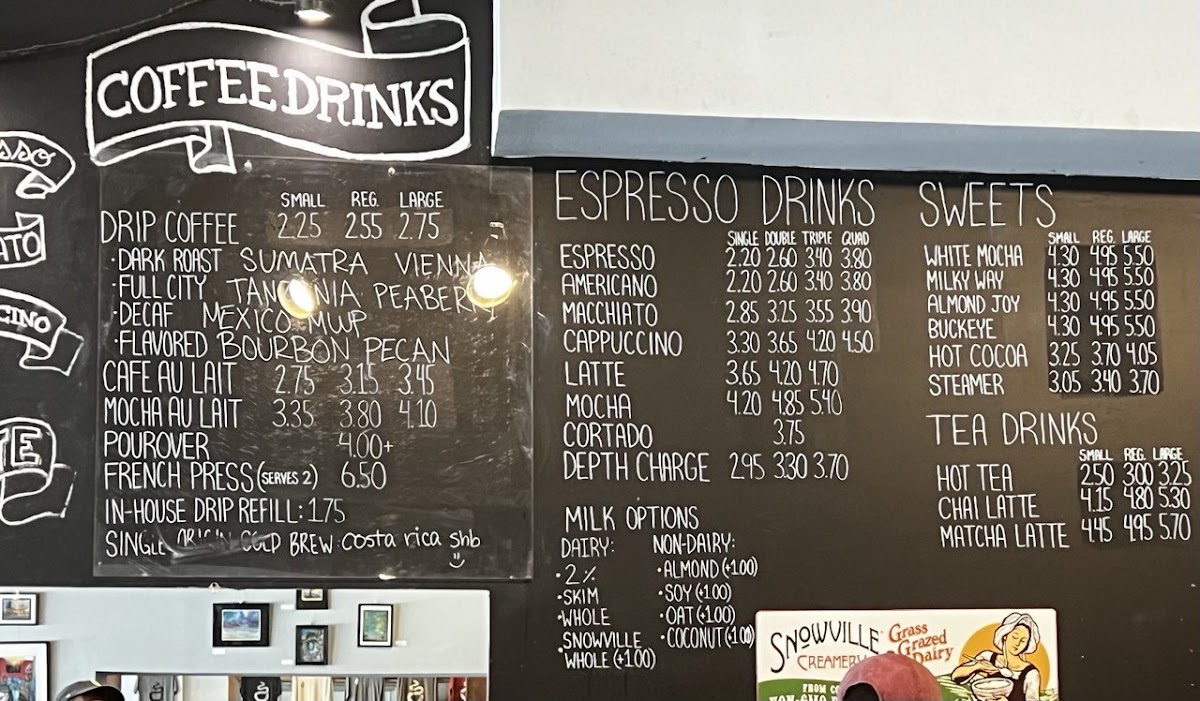 COFFEE DRINKS
SMALL REG. LARGE
DRIP COFFEE 2.25 2.55 2.75
·DARK ROAST SUMATRA VIENNA
·FULL CITY TANZANIA PEABERRY
·DECAF MEXICO MWP
·FLAVORED BOURBON PECAN
CAFE AU LAIT 2.75 3.15 3.45
MOCHA AU LAIT 3.35 3.80 4.10
POUROVER 4.00+
FRENCH PRESS (SERVES 2) 6.50
IN-HOUSE DRIP REFILL: 1.75
SINGLE ORIGIN COLD BREW: costa rica shb
ESPRESSO DRINKS
SINGLE DOUBLE TRIPLE QUAD
ESPRESSO 2.20 2.60 3.40 3.80
AMERICANO 2.20 2.60 3.40 3.80
MACCHIATO 2.85 3.25 3.55 3.90
CAPPUCCINO 3.30 3.65 4.20 4.50
LATTE 3.65 4.20 4.70
MOCHA 4.20 4.85 5.40
CORTADO 3.75
DEPTH CHARGE 2.95 3.30 3.70
MILK OPTIONS
DAIRY:
·2%
·SKIM
·WHOLE
·SNOWVILLE
WHOLE (+1.00)
NON-DAIRY:
·ALMOND (+1.00)
·SOY (+1.00)
·OAT (+1.00)
·COCONUT (+1.00)
SWEETS
SMALL REG. LARGE
WHITE MOCHA 4.30 4.95 5.50
MILKY WAY 4.30 4.95 5.50
ALMOND JOY 4.30 4.95 5.50
BUCKEYE 4.30 4.95 5.50
HOT COCOA 3.25 3.70 4.05
STEAMER 3.05 3.40 3.70
TEA DRINKS
SMALL REG. LARGE
HOT TEA 2.50 3.00 3.25
CHAI LATTE 4.15 4.80 5.30
MATCHA LATTE 4.45 4.95 5.70
SNOWVILLE
CREAMERY
Grass
Grazed
Dairy